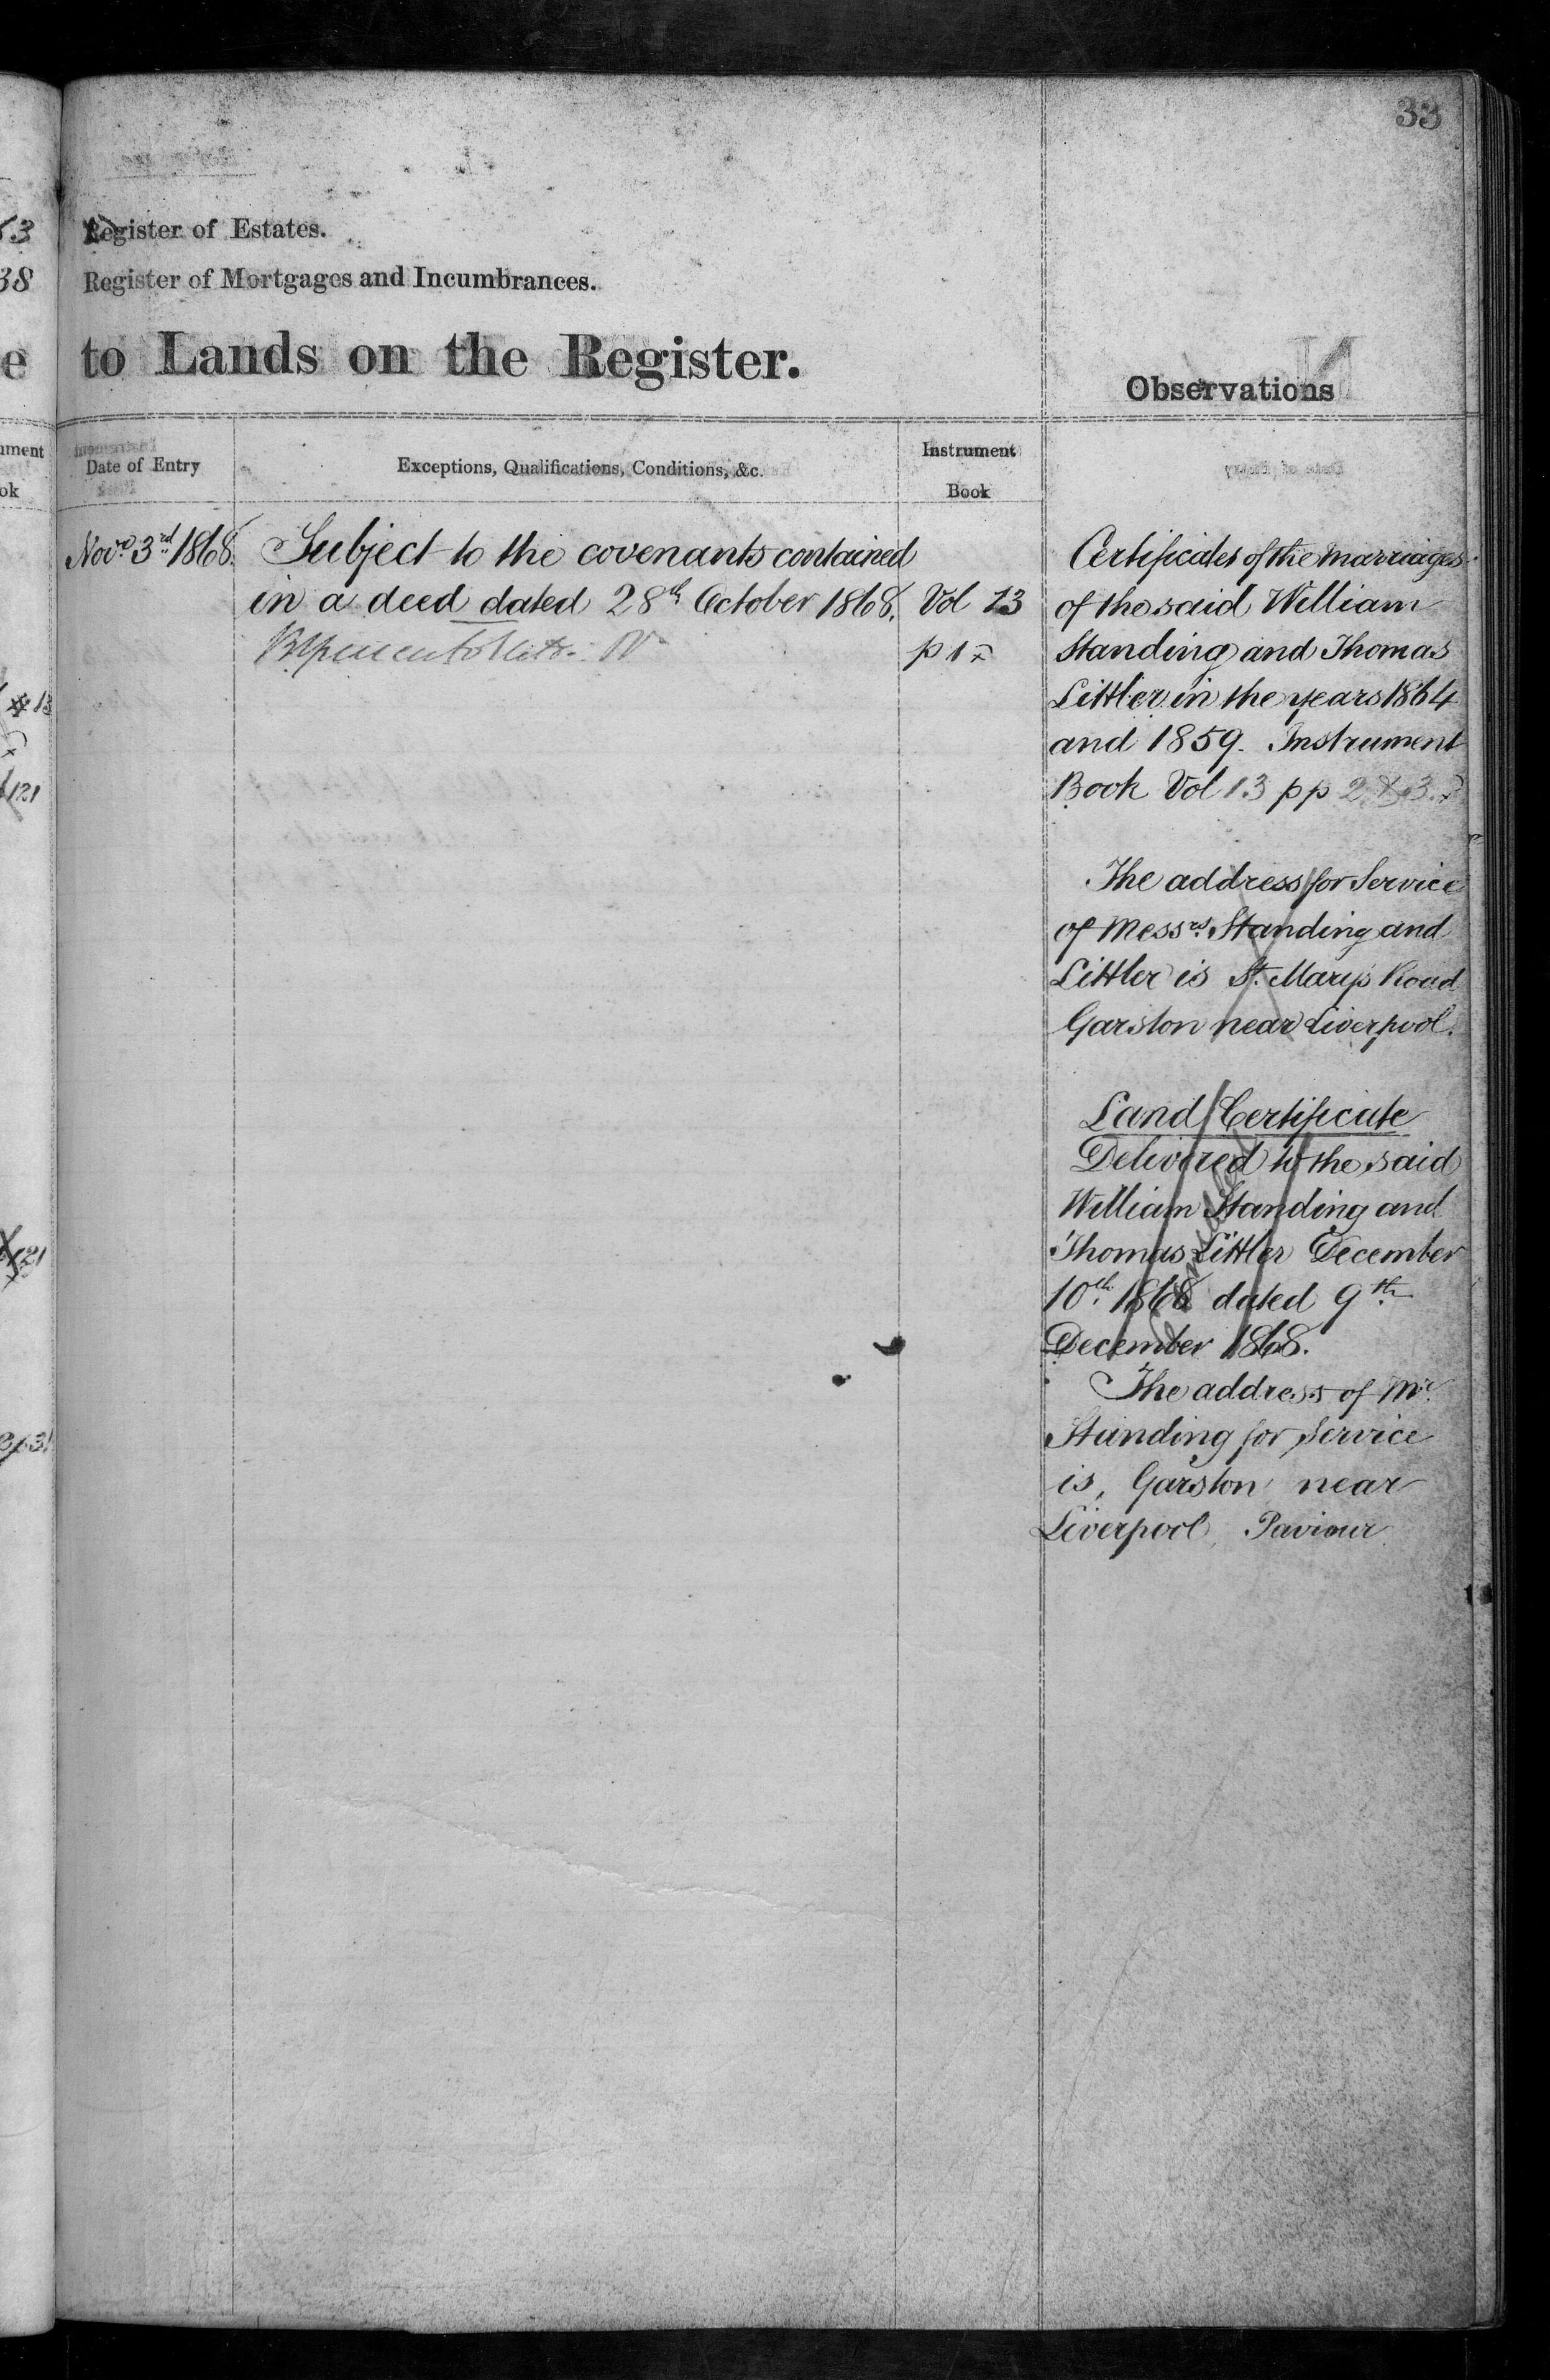 33
Register of Estates.
Register of Mortgages and Incumbrances.
to Lands on the Register.
Observations
Date of Entry
Exceptions, Qualifications, Conditions, &c.
Instrument
Book
Novr 3rd 1868.
Subject to the covenants contained
in a deed dated 28th October 1868.
Vol 13
p 1
Certificates of the marriages
of the said William
Standing and Thomas
Littler in the years 1864
and 1859. Instrument
Book Vol 13 pp 2 & 3.
The address for Service
of Messrs. Standing and
Littler is St. Mary's Road
Garston near Liverpool.
Land Certificate
Delivered to the said
William Standing and
Thomas Littler December
10th 1868 dated 9th
December 1868.
The address of Mr.
Standing for Service
is, Garston near
Liverpool, Paviour